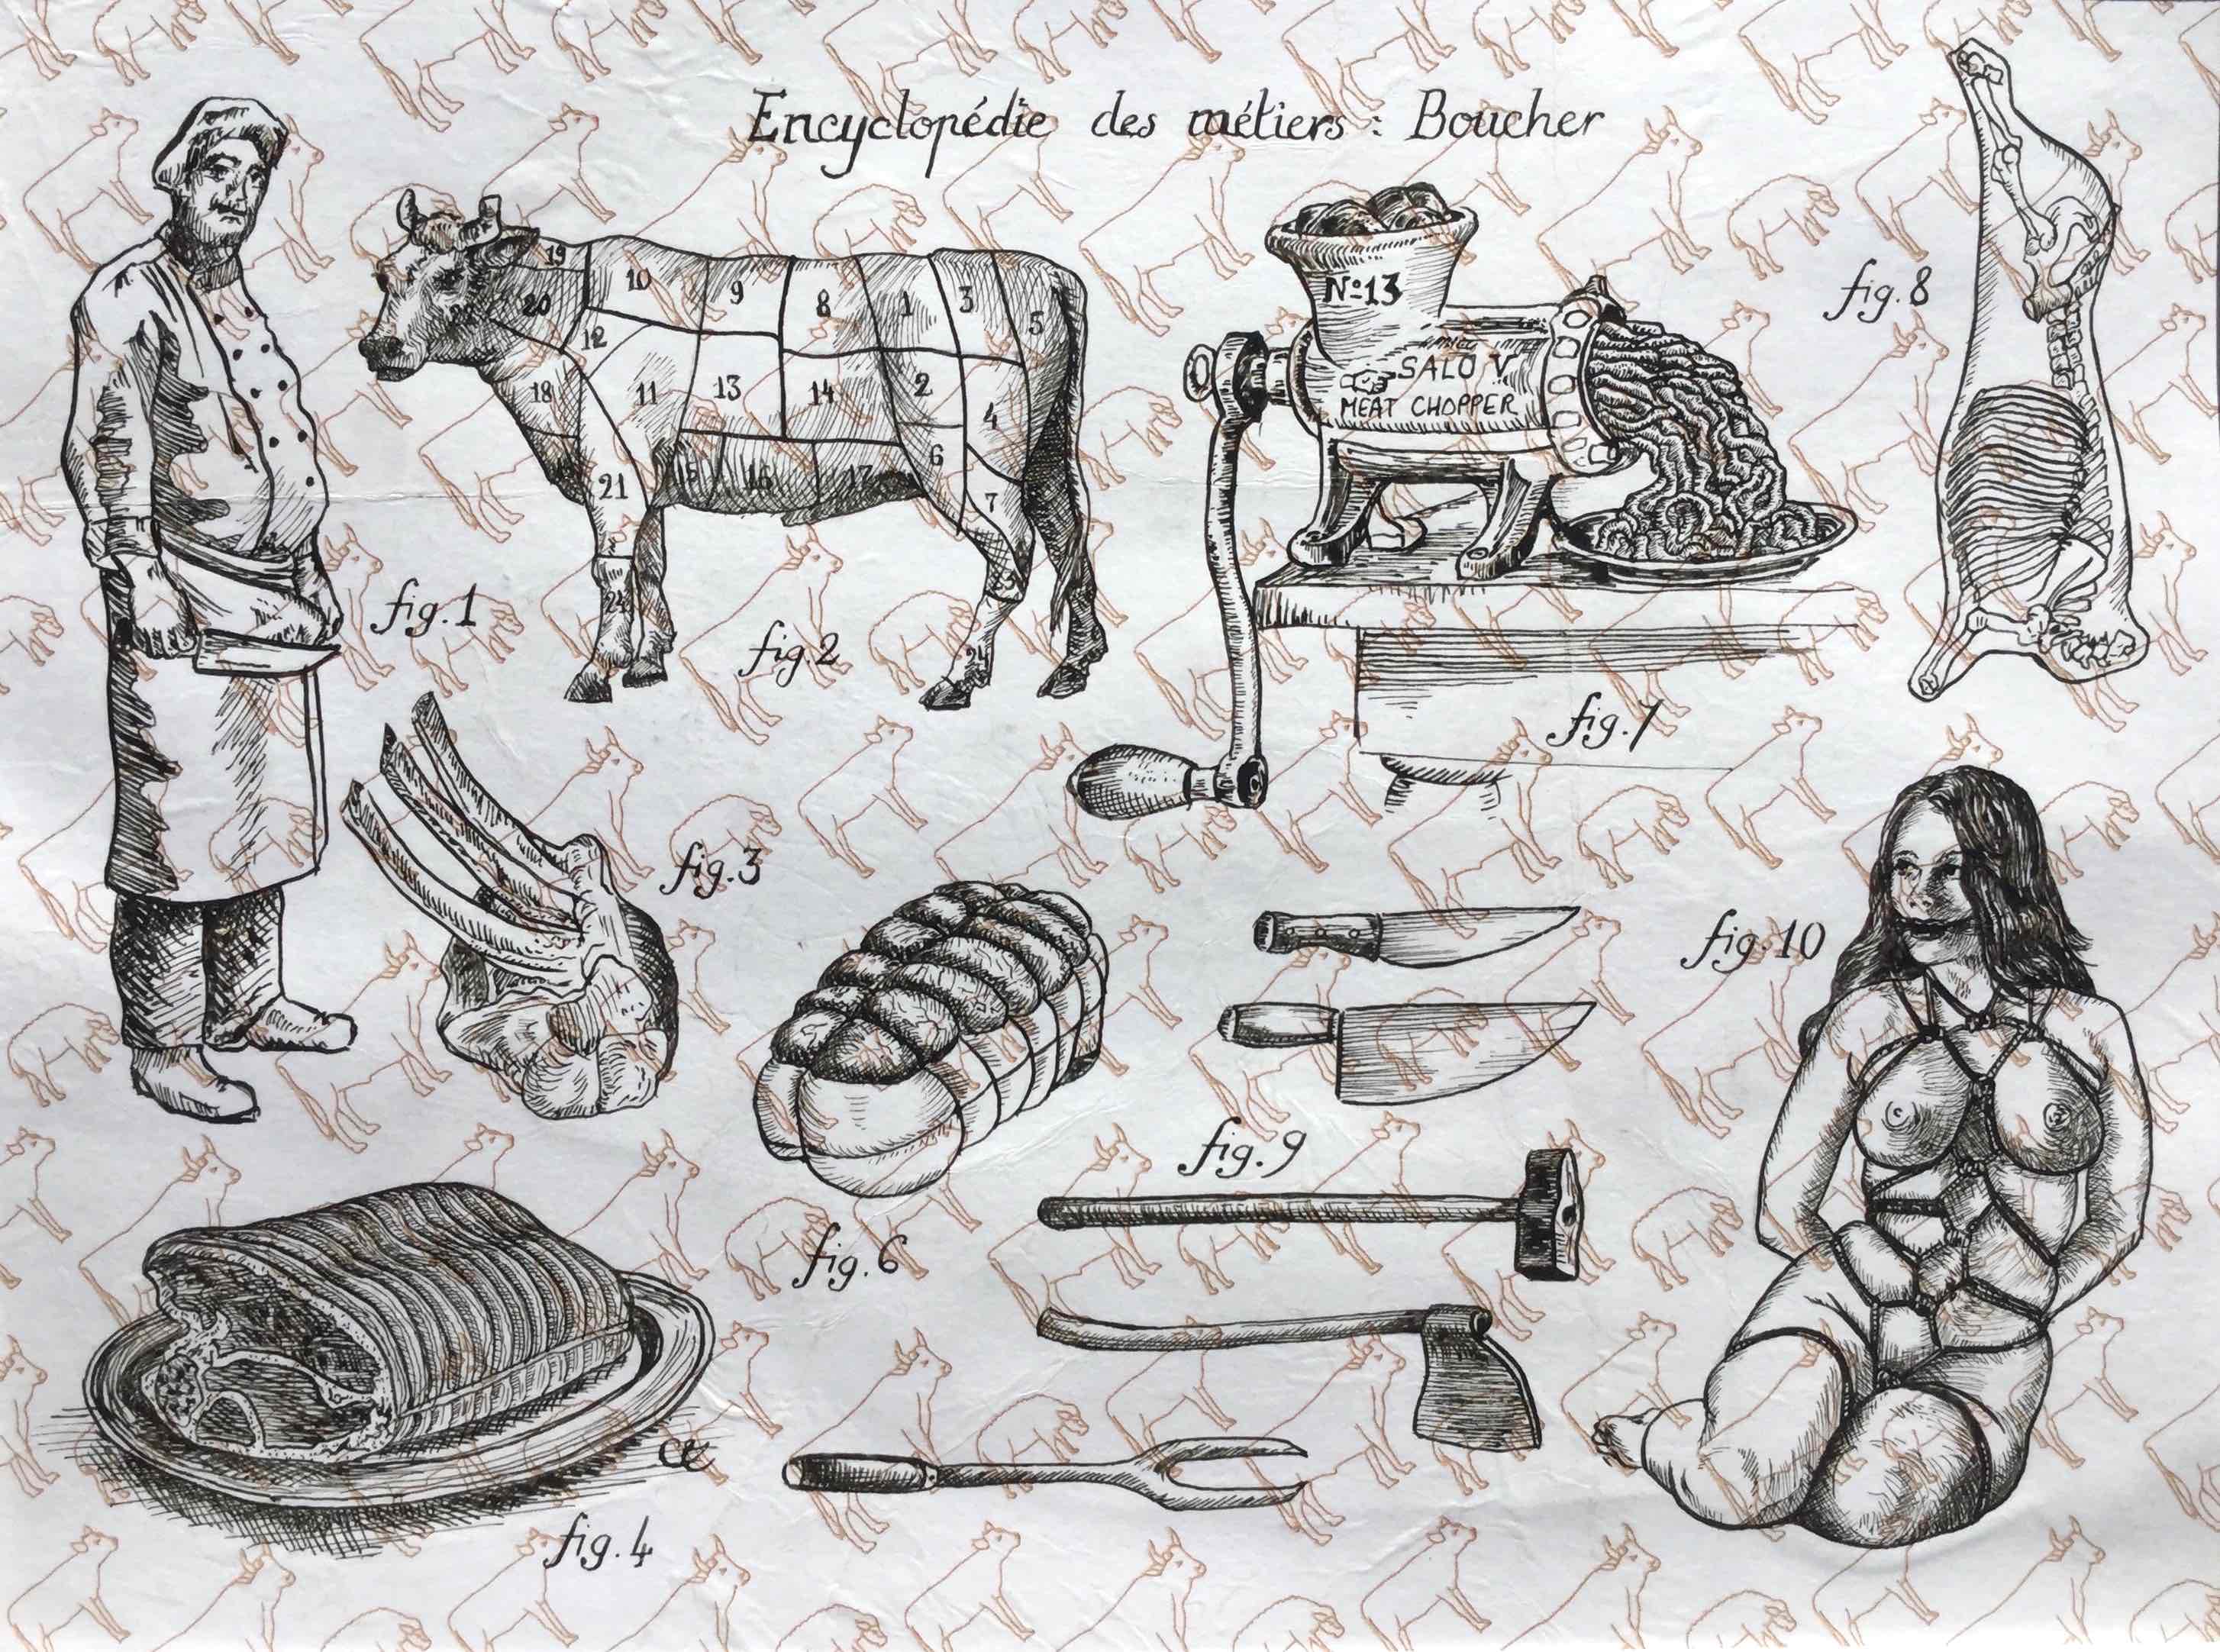 Encyclopédie des métiers : Boucher
fig. 1
19
20
22
10
9
8
1
3
5
12
18
11
13
14
2
4
6
7
15
16
17
21
24
fig. 2
Nº13
SALO V
MEAT CHOPPER
fig. 7
fig. 8
fig. 3
fig. 6
fig. 9
fig. 10
fig. 4